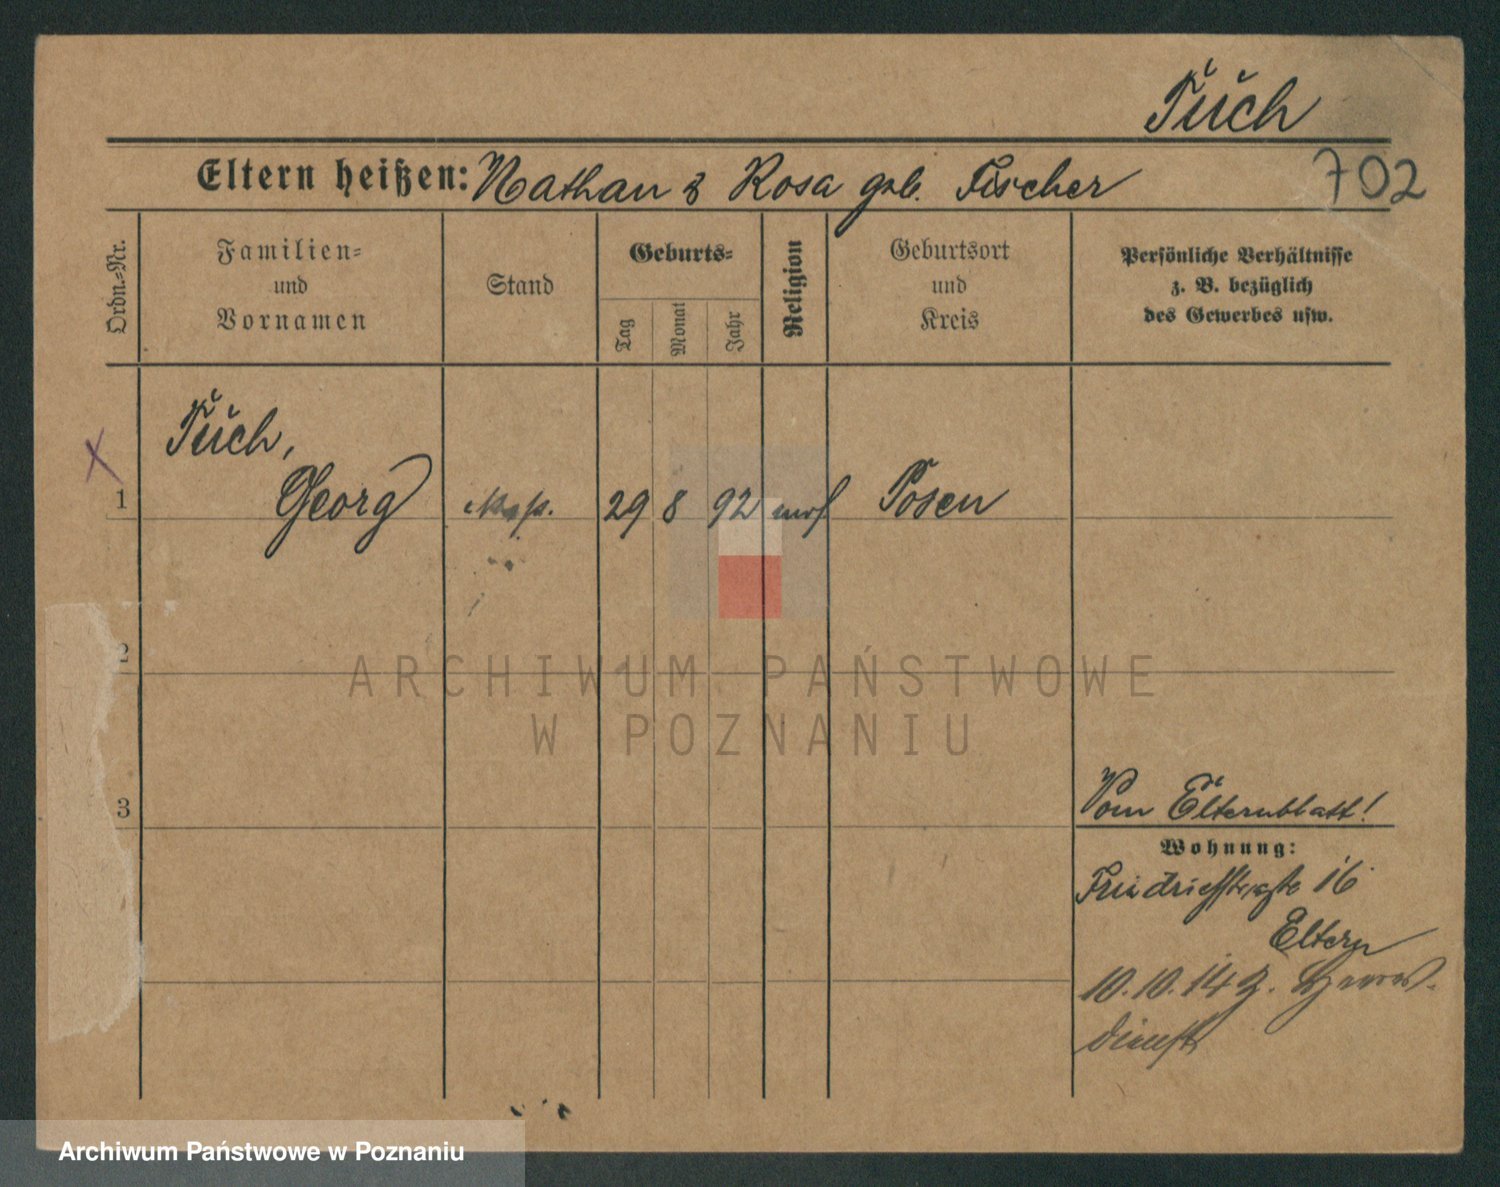 Tuch
Eltern heißen: Nathan & Rosa geb. Fischer
702
Ordn.=Nr.
Familien=
und
Vornamen
Stand
Geburts=
Tag
Monat
Jahr
Religion
Geburtsort
und
Kreis
Persönliche Verhältnisse
z. B. bezüglich
des Gewerbes usw.
Tuch,
x
1 Georg 29 8 92 mos Posen
2
ARCHIWUM PAŃSTWOWE
W POZNANIU
Vom Elternblatt!
3
Wohnung:
Friedrichstraße 16
Eltern
10.10.14 z. Heeres-
dienst
Archiwum Państwowe w Poznaniu